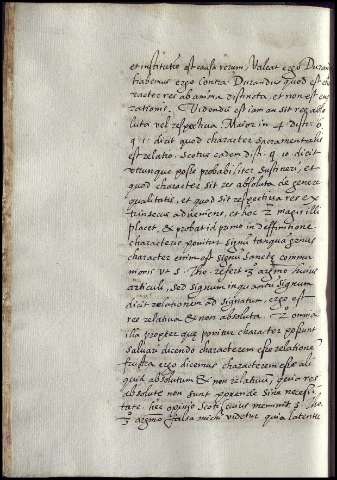 et institutio est causa rerum. Valeat ergo Duran
habemus ergo contra Durandus quod est cha
racter res ab anima distincta, et non est ens
rationis. Videndũ est iam an sit res abso
luta vel respectiva. Maior in 4. distĩ. 6.
q. 1. dicit quod character sacramentalis
est relatio. Scotus eadem dist. q. 10. dicit
utrunque posse probabiliter sustineri, et
quod character sit res absoluta de genere
qualitatis, et quod sit respectiva res ex
trinsecus adveniens, et hoc 2 magis illi
placet, & probat id primo in deffinitione
characteris ponitur signũ tanquã genus
character enim est signũ sanctę commu
nionis ut s. Tho. refert 3 argmo huius
articuli, sed signum in quantũ signum
dicit relationem ad signatum, ergo est
res relativa & non absoluta. 2 omnia
illa propter quę ponitur character possunt
salvari dicendo characterem esse relationẽ
frustra ergo dicemus characterem esse ali
quid absolutum & non relativũ, quia res
absolute non sunt ponendę sine necessi
tate. hęc opinio Scoti cuius meminit s. Tho.
3 argmo falsa mihi videtur quia latenter